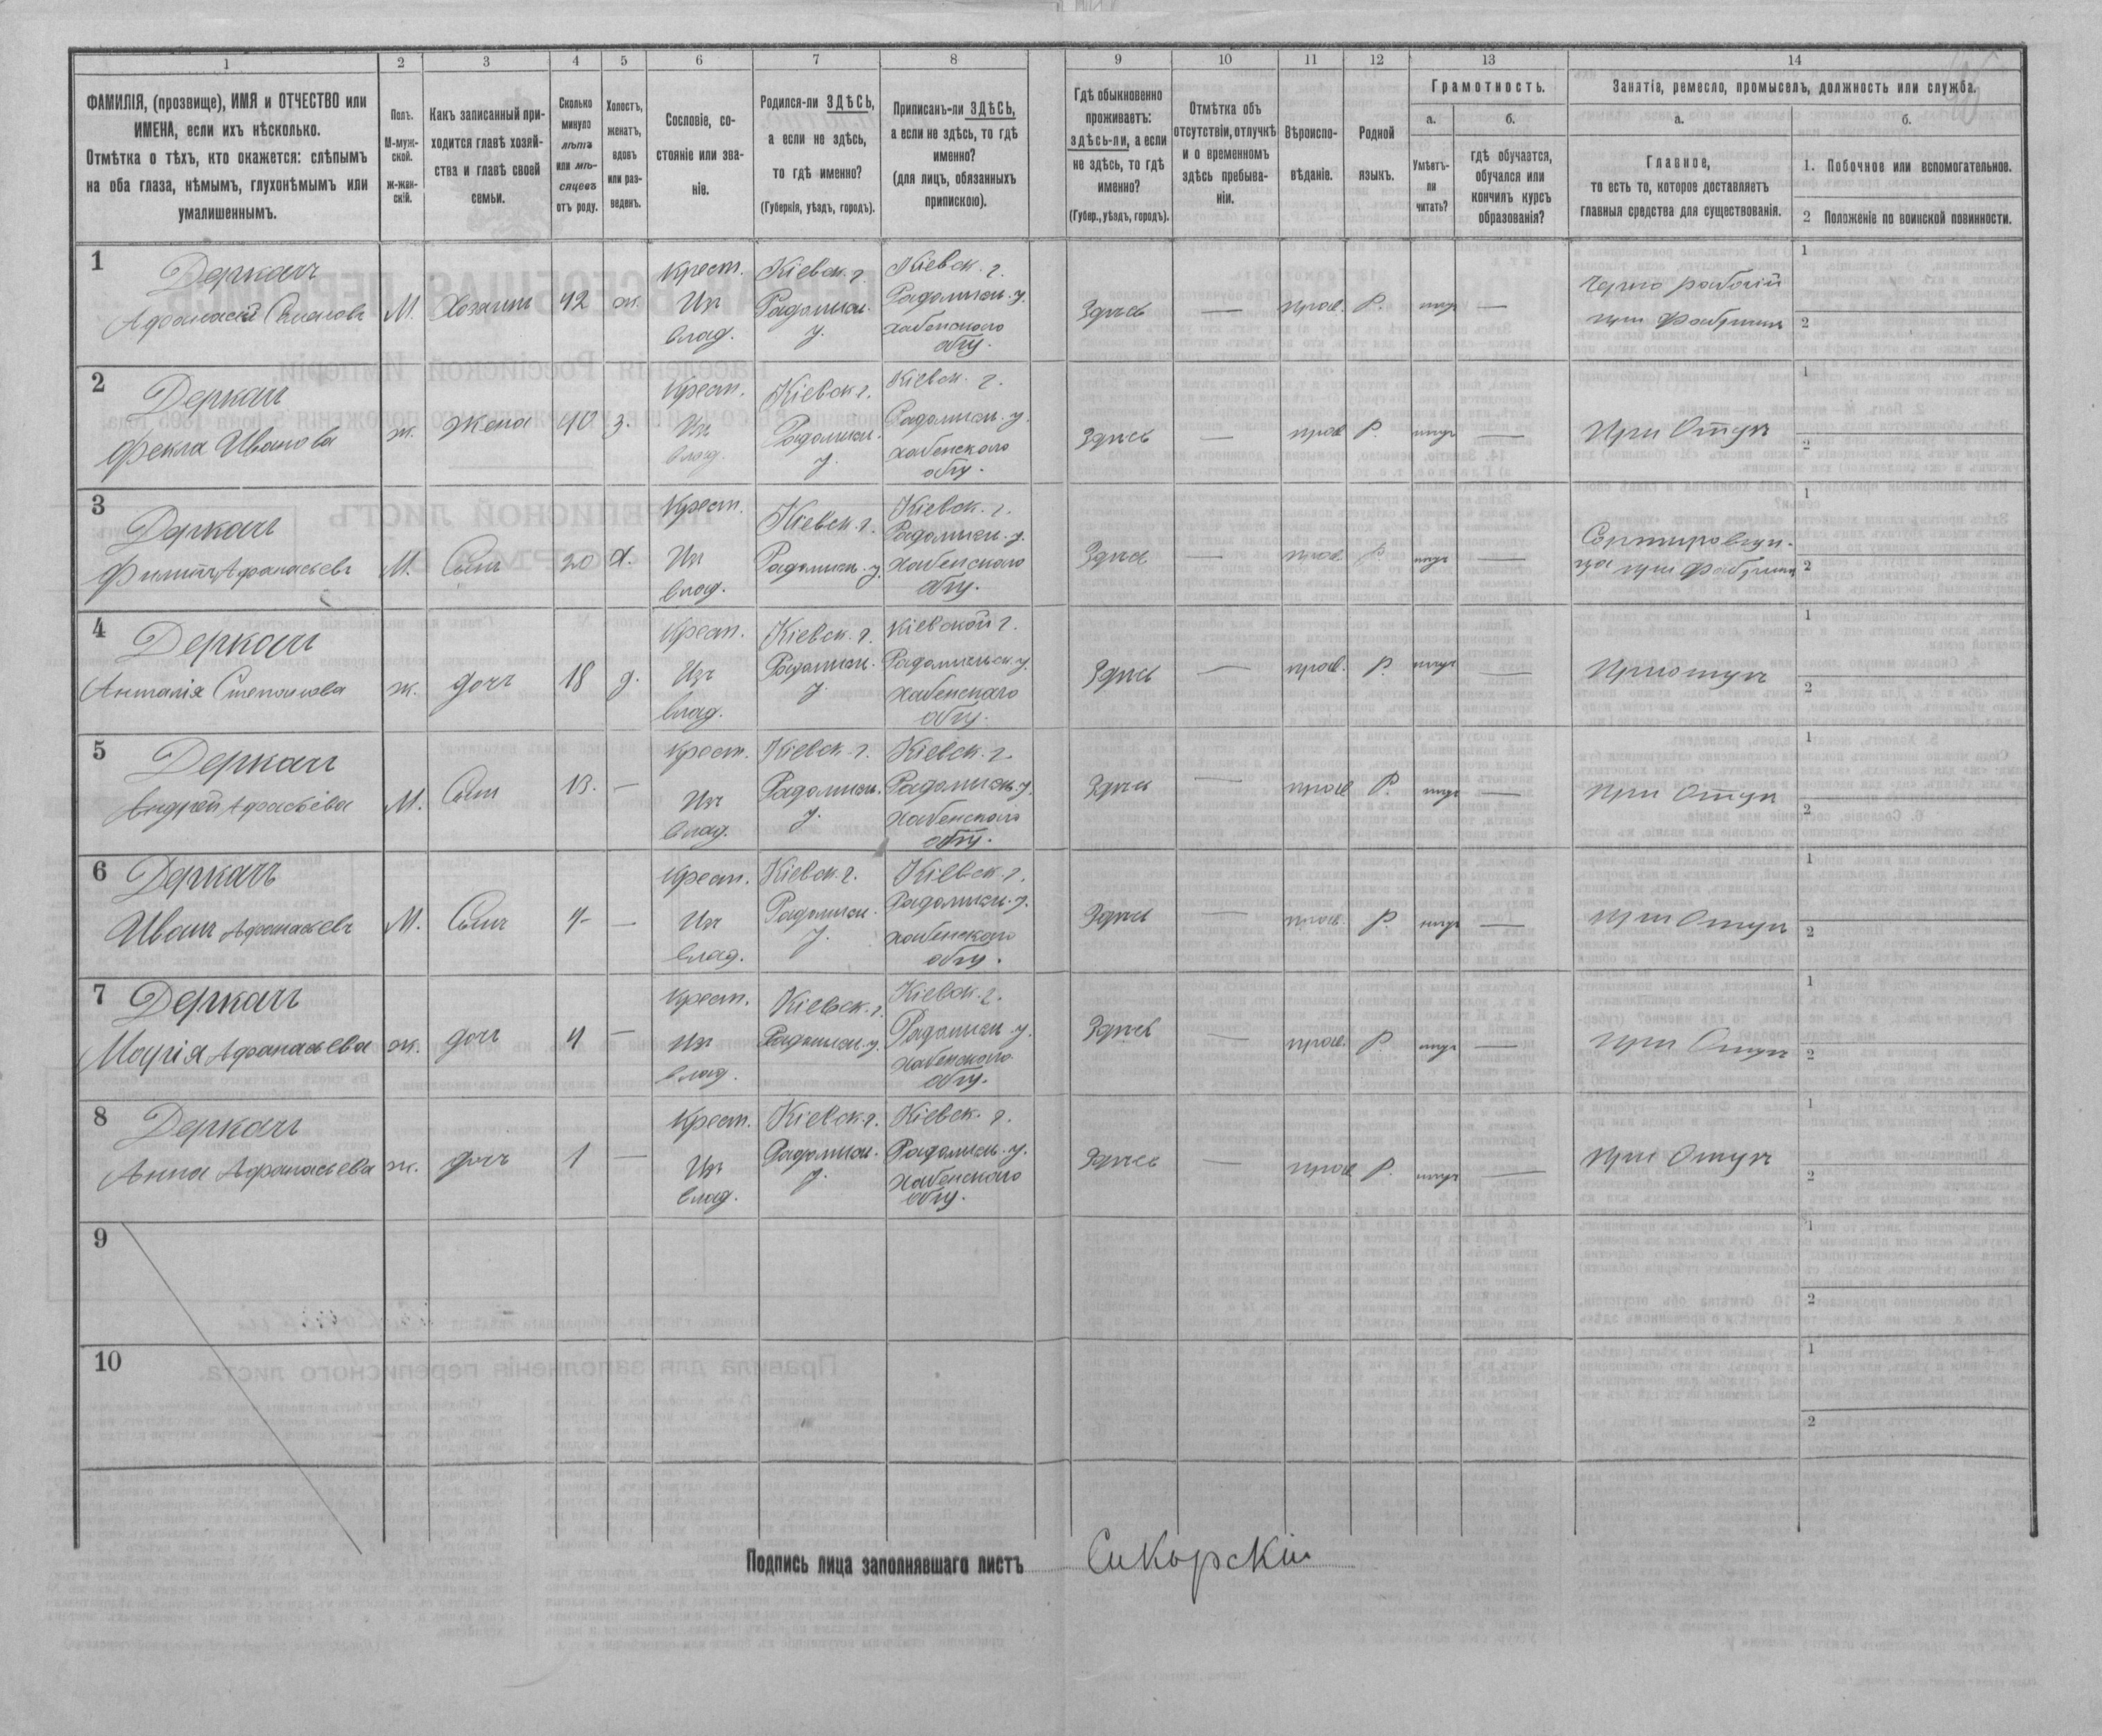 1 2 3 4 5 6 7 8 9 10 11 12 13 14
ФАМИЛІЯ, (прозвище), ИМЯ и ОТЧЕСТВО или
ИМЕНА, если ихъ нѣсколько.
Отмѣтка о тѣхъ, кто окажется: слѣпымъ
на оба глаза, нѣмымъ, глухонѣмымъ или
умалишеннымъ.
Полъ.
М-муж-
ской.
ж-жен-
скій.
Какъ записанный при-
ходится главѣ хозяй-
ства и главѣ своей
семьи.
Сколько
минуло
лѣтъ
или мѣ-
сяцевъ
отъ роду.
Холостъ,
женатъ,
вдовъ
или раз-
веденъ.
Сословіе, со-
стояніе или зва-
ніе.
Родился-ли ЗДѢСЬ,
а если не здѣсь,
то гдѣ именно?
(Губернія, уѣздъ, городъ).
Приписанъ-ли ЗДѢСЬ,
а если не здѣсь, то гдѣ
именно?
(для лицъ, обязанныхъ
припискою).
Гдѣ обыкновенно
проживаетъ:
здѣсь-ли, а если
не здѣсь, то гдѣ
именно?
(Губер., уѣздъ, городъ).
Отмѣтка объ
отсутствіи, отлучкѣ
и о временномъ
здѣсь пребыва-
ніи.
Вѣроиспо-
вѣданіе.
Родной
языкъ.
Грамотность.
а.
Умѣетъ-
ли
читать?
б.
гдѣ обучается,
обучался или
кончилъ курсъ
образованія?
Занятія, ремесло, промыселъ, должность или служба.
а.
Главное,
то есть то, которое доставляетъ
главныя средства для существованія.
б.
1. Побочное или вспомогательное.
2 Положеніе по воинской повинности.
1 Деркачъ
Афанасій Степановъ М. Хозяинъ 42 ж. Крест. Изъ влад. Кіевск. г. Радомысл. у. Кіевск. г. Радомысл. у. Хабенского общ. Здѣсь — прав. Р. — Черно рабочій при Фабрикѣ
1
2
2 Деркачъ
Фекла Иванова ж. Жена 40 з. Крест. Изъ влад. Кіевск г. Радомысл. у. Кіевск. г. Радомысл. у. Хабенского общ. Здѣсь — прав Р. — При Отцѣ
1
2
3 Деркачъ
Филиппъ Афанасьевъ М. Сынъ 20 Х. Крест. Изъ влад. Кіевск. г. Радомысл. у. Кіевск. г. Радомысл. у. Хабенского общ. Здѣсь — прав. Р. — при Фабрикѣ
1
2
4 Деркачъ
Степанова ж. дочь 18 д. Крест. Изъ влад. Кіевск. г. Радомысл. у. Кіевской г. Радомысльск. у. Хабенского общ. Здѣсь — прав. Р. — При отцѣ
1
2
5 Деркачъ
Андрей М. Сынъ 13. — Крест. Изъ влад. Кіевск. г. Радомысл. у. Кіевск. г. Радомысл. у. Хабенского общ. Здѣсь — прав Р. — При Отцѣ
1
2
6 Деркачъ
Иванъ Афанасьевъ М. Сынъ — Крест. Изъ влад. Кіевск. г. Радомысл. у. Кіевск. г. Радомысл. у. Хабенского общ. Здѣсь — прав. Р. — При Отцѣ
1
2
7 Деркачъ
Марія Афанасьева ж. дочь 4 — Крест. Изъ влад. Кіевск. г. Радомысл. у. Кіевск. г. Радомысл. у. Хабенского общ. Здѣсь — прав. Р. — При Отцѣ
1
2
8 Деркачъ
Анна Афанасьева ж. дочь 1 — Крест. Изъ влад. Кіевск. г. Радомысл. у. Кіевск. г. Радомысл. у. Хабенского общ. Здѣсь — прав Р. — При Отцѣ
1
2
9
1
2
10
1
2
Подпись лица заполнявшаго листъ Сикорскій